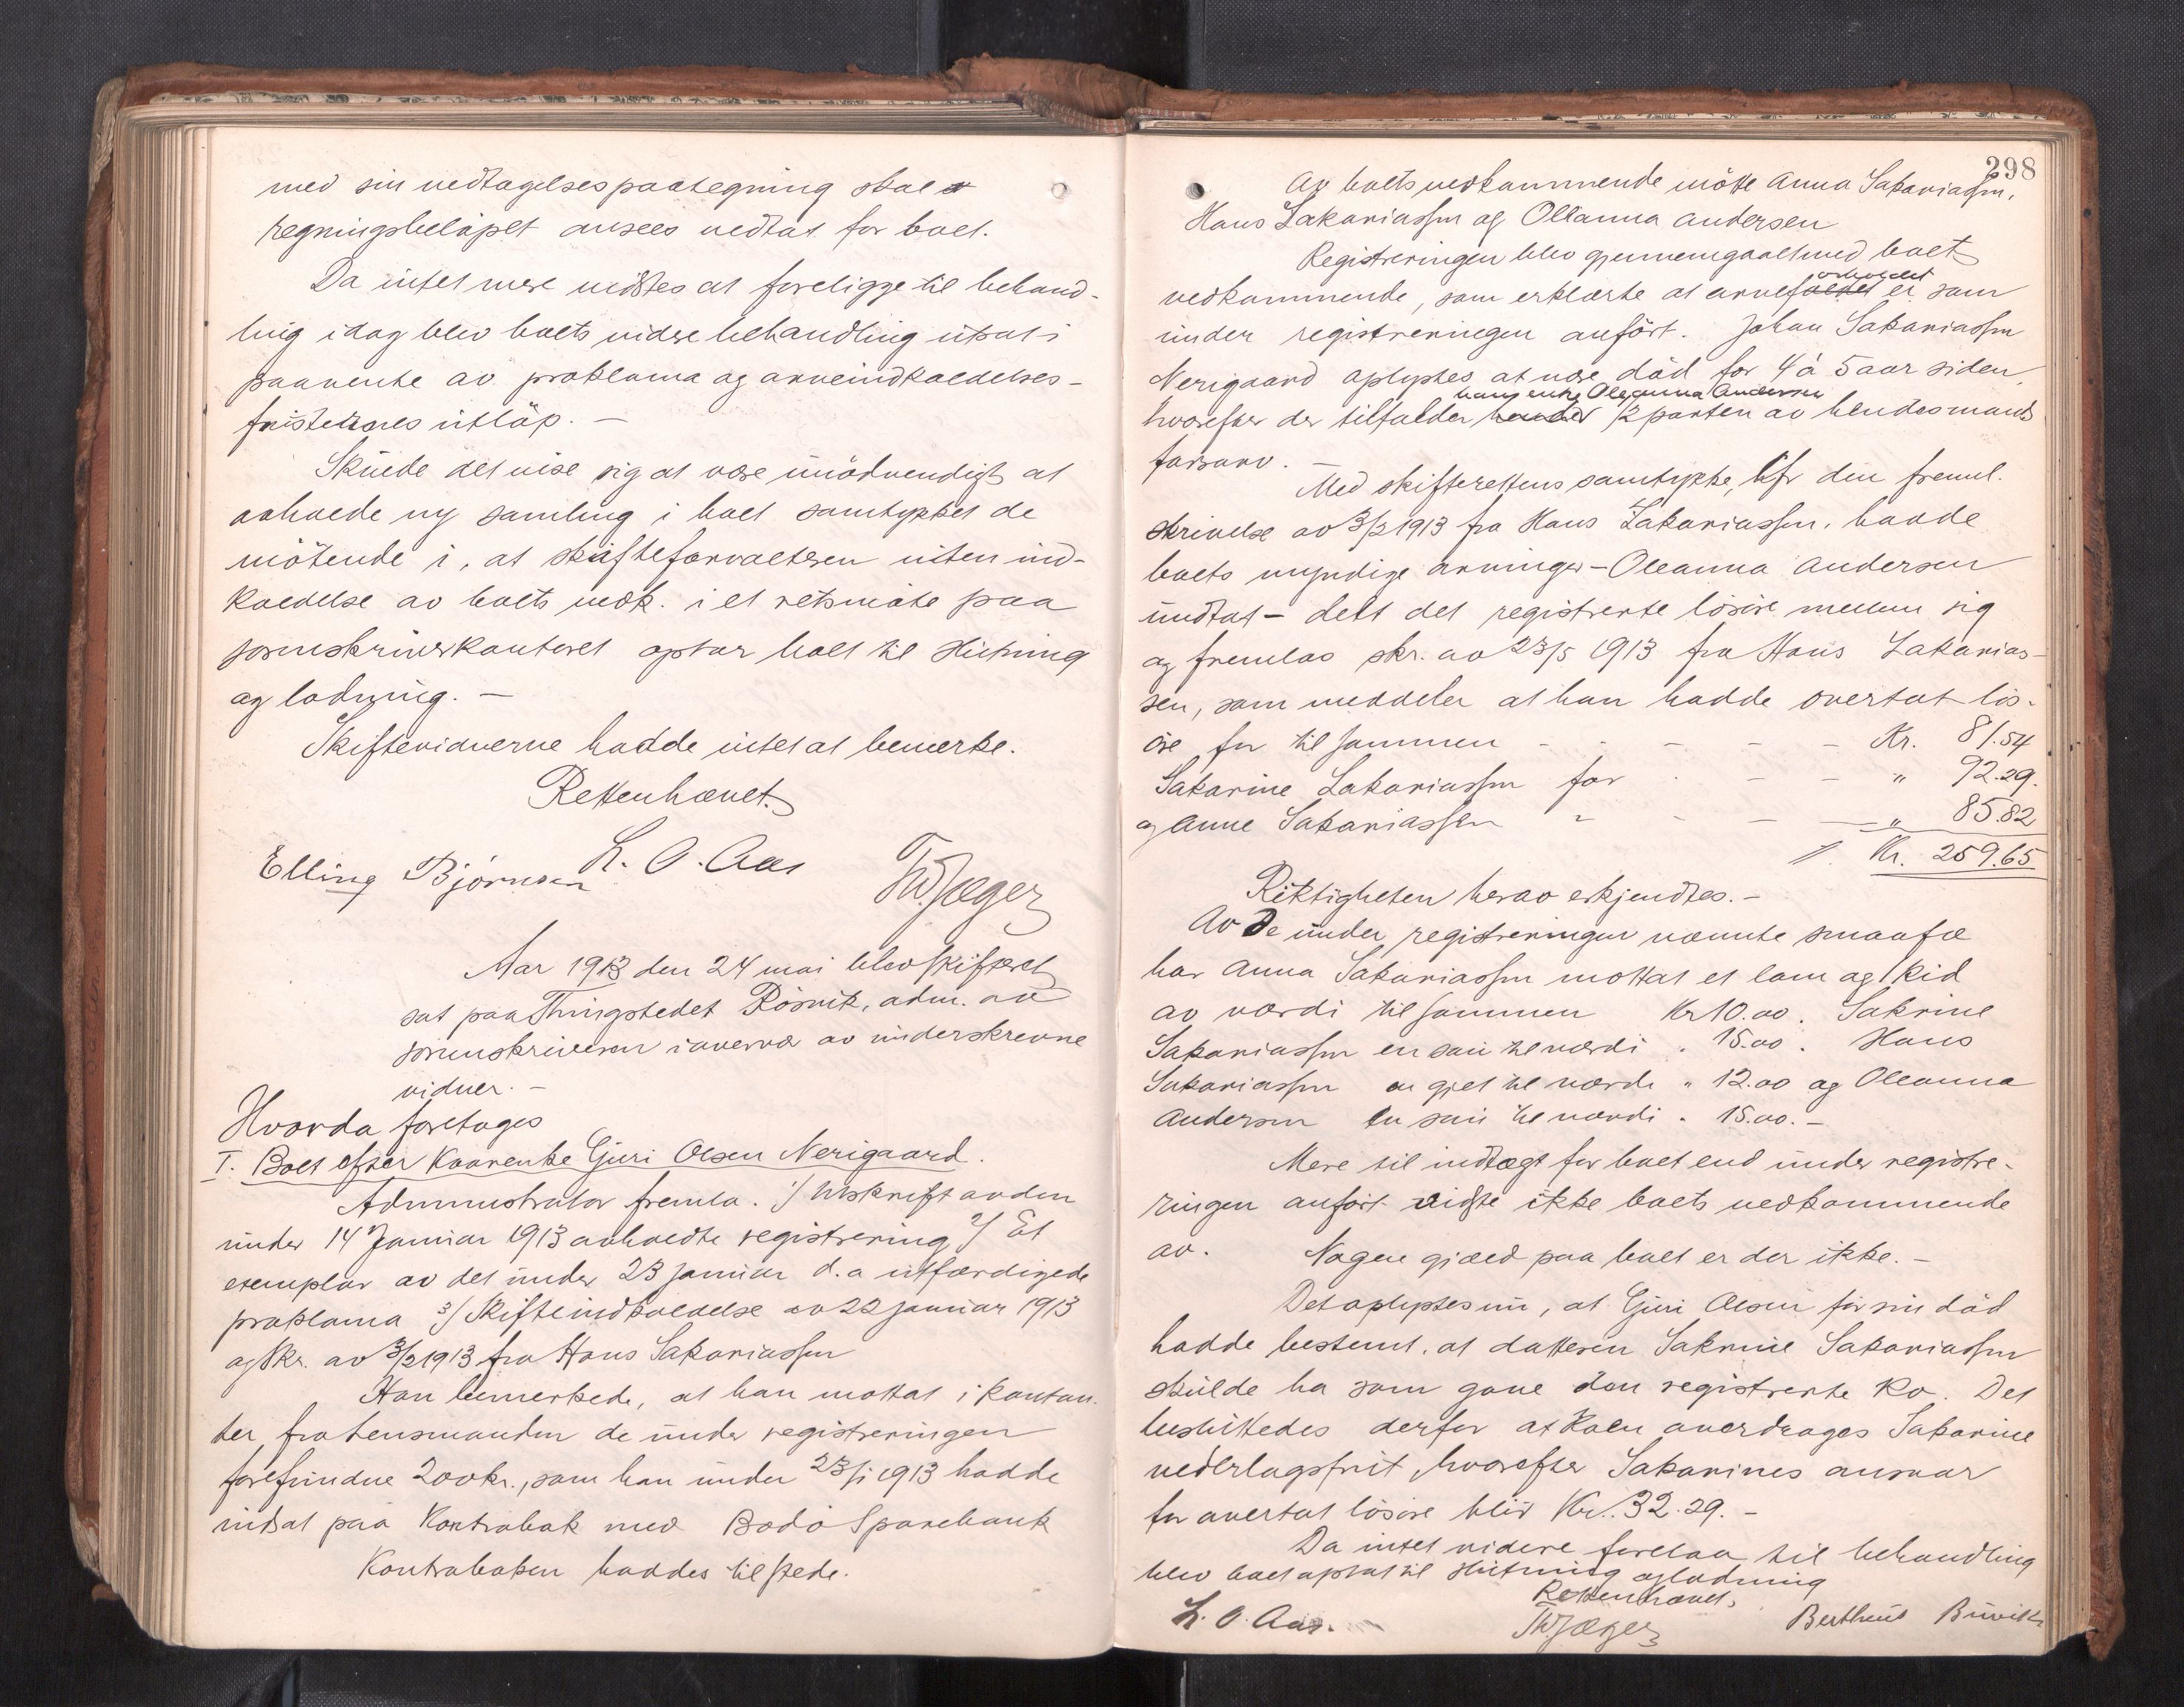 med sin vedtagelsespaategning skal
regningsbeløpet ansees vedtat for boet.
Da intet mere vidstes at foreligge til behand-
ling idag blev boets videre behandling utsat i
paavente av proklama og arveindkaldelses-
fristernes utløp. —
Skulde det vise sig at være unødvendigt at
avholde ny samling i boet samtykket de
møtende i, at skifteforvalteren uten ind-
kaldelse av boets vedk. i et retsmøte paa
sorenskriverkontoret optar boet til slutning
og lodning. —
Skiftevidnerne hadde intet at bemerke.
Retten hævet.
Elling Bjørnsen L. O. Aas Th. Jæger
Aar 1913 den 24 mai blev skifteret
sat paa Thingstedet Røsvik, adm. av
sorenskriveren i overvær av underskrevne
vidner. —
Hvorda foretoges
I. Boet efter Kaarenke Guri Olsen Nerigaard.
Administrator fremla. 1/ Utskrift av den
under 14 Januar 1913 avholdte registrering 2/ Et
exemplar av det under 23 januar d.a utfærdigede
proklama 3/ Skifteindkaldelse av 22 januar 1913
og skr. av 3/2 1913 fra Hans Sakariassen
Han bemerkede, at han mottat i kontan-
ter fra lensmanden de under registreringen
forefundne 200 kr., som han under 23/1 1913 hadde
indsat paa Kontrabok med Bodø Sparebank
Kontraboken haddes tilstede.
298
Av boets vedkommende møtte Anna Sakariassen,
Hans Zakariassen og Olianna Andersen
Registreringen blev gjennemgaaet med boets
vedkommende, som erklærte at arveforholdet er som
under registreringen anført. Johan Sakariassen
Nerigaard oplystes at være død for 4 à 5 aar siden,
hans enke Oleanna Andersen
hvorefter der tilfalder 1/2 parten av hendes mands
farsarv. —
Med skifterettens samtykke, cfr den freml.
skrivelse av 3/2 1913 fra Hans Zakariassen, hadde
boets myndige arvinger – Oleanna Andersen
undtat – delt det registrerte løsøre mellem sig
og fremlaes skr. av 23/5 1913 fra Hans Zakarias-
sen, som meddeler at han hadde overtat løs-
øre for tilsammen - - - - Kr. 81.54
Sakarine Zakariassen for - - - " 92.29.
og Anne Sakariassen " - - - " 85.82
Kr. 259.65
Riktigheten herav erkjendtes. —
Av de under registreringen nævnte smaafæ
har Anna Sakariassen mottat et lam og 1 kid
av værdi tilsammen Kr 10.00. Sakrine
Sakariassen en sau til værdi " 15.00. Hans
Sakariassen en gjet til værdi " 12.00 og Oleanna
Andersen en sau til værdi " 15.00. —
Mere til indtægt for boet end under registre-
ringen anført vidste ikke boets vedkommende
av. Nogen gjæld paa boet er der ikke. —
Det oplystes nu, at Guri Olsen før sin død
hadde bestemt, at datteren Sakrine Sakariassen
skulde ha som gave den registrerte ko. Det
besluttedes derfor at koen overdrages Sakarine
vederlagsfrit, hvorefter Sakarines ansvar
for overtat løsøre blir Kr. 32.29. —
Da intet videre forelaa til behandling
blev boet optat til slutning og lodning
Retten hævet.
L. O. Aas. Th. Jæger Bertheus Buvik